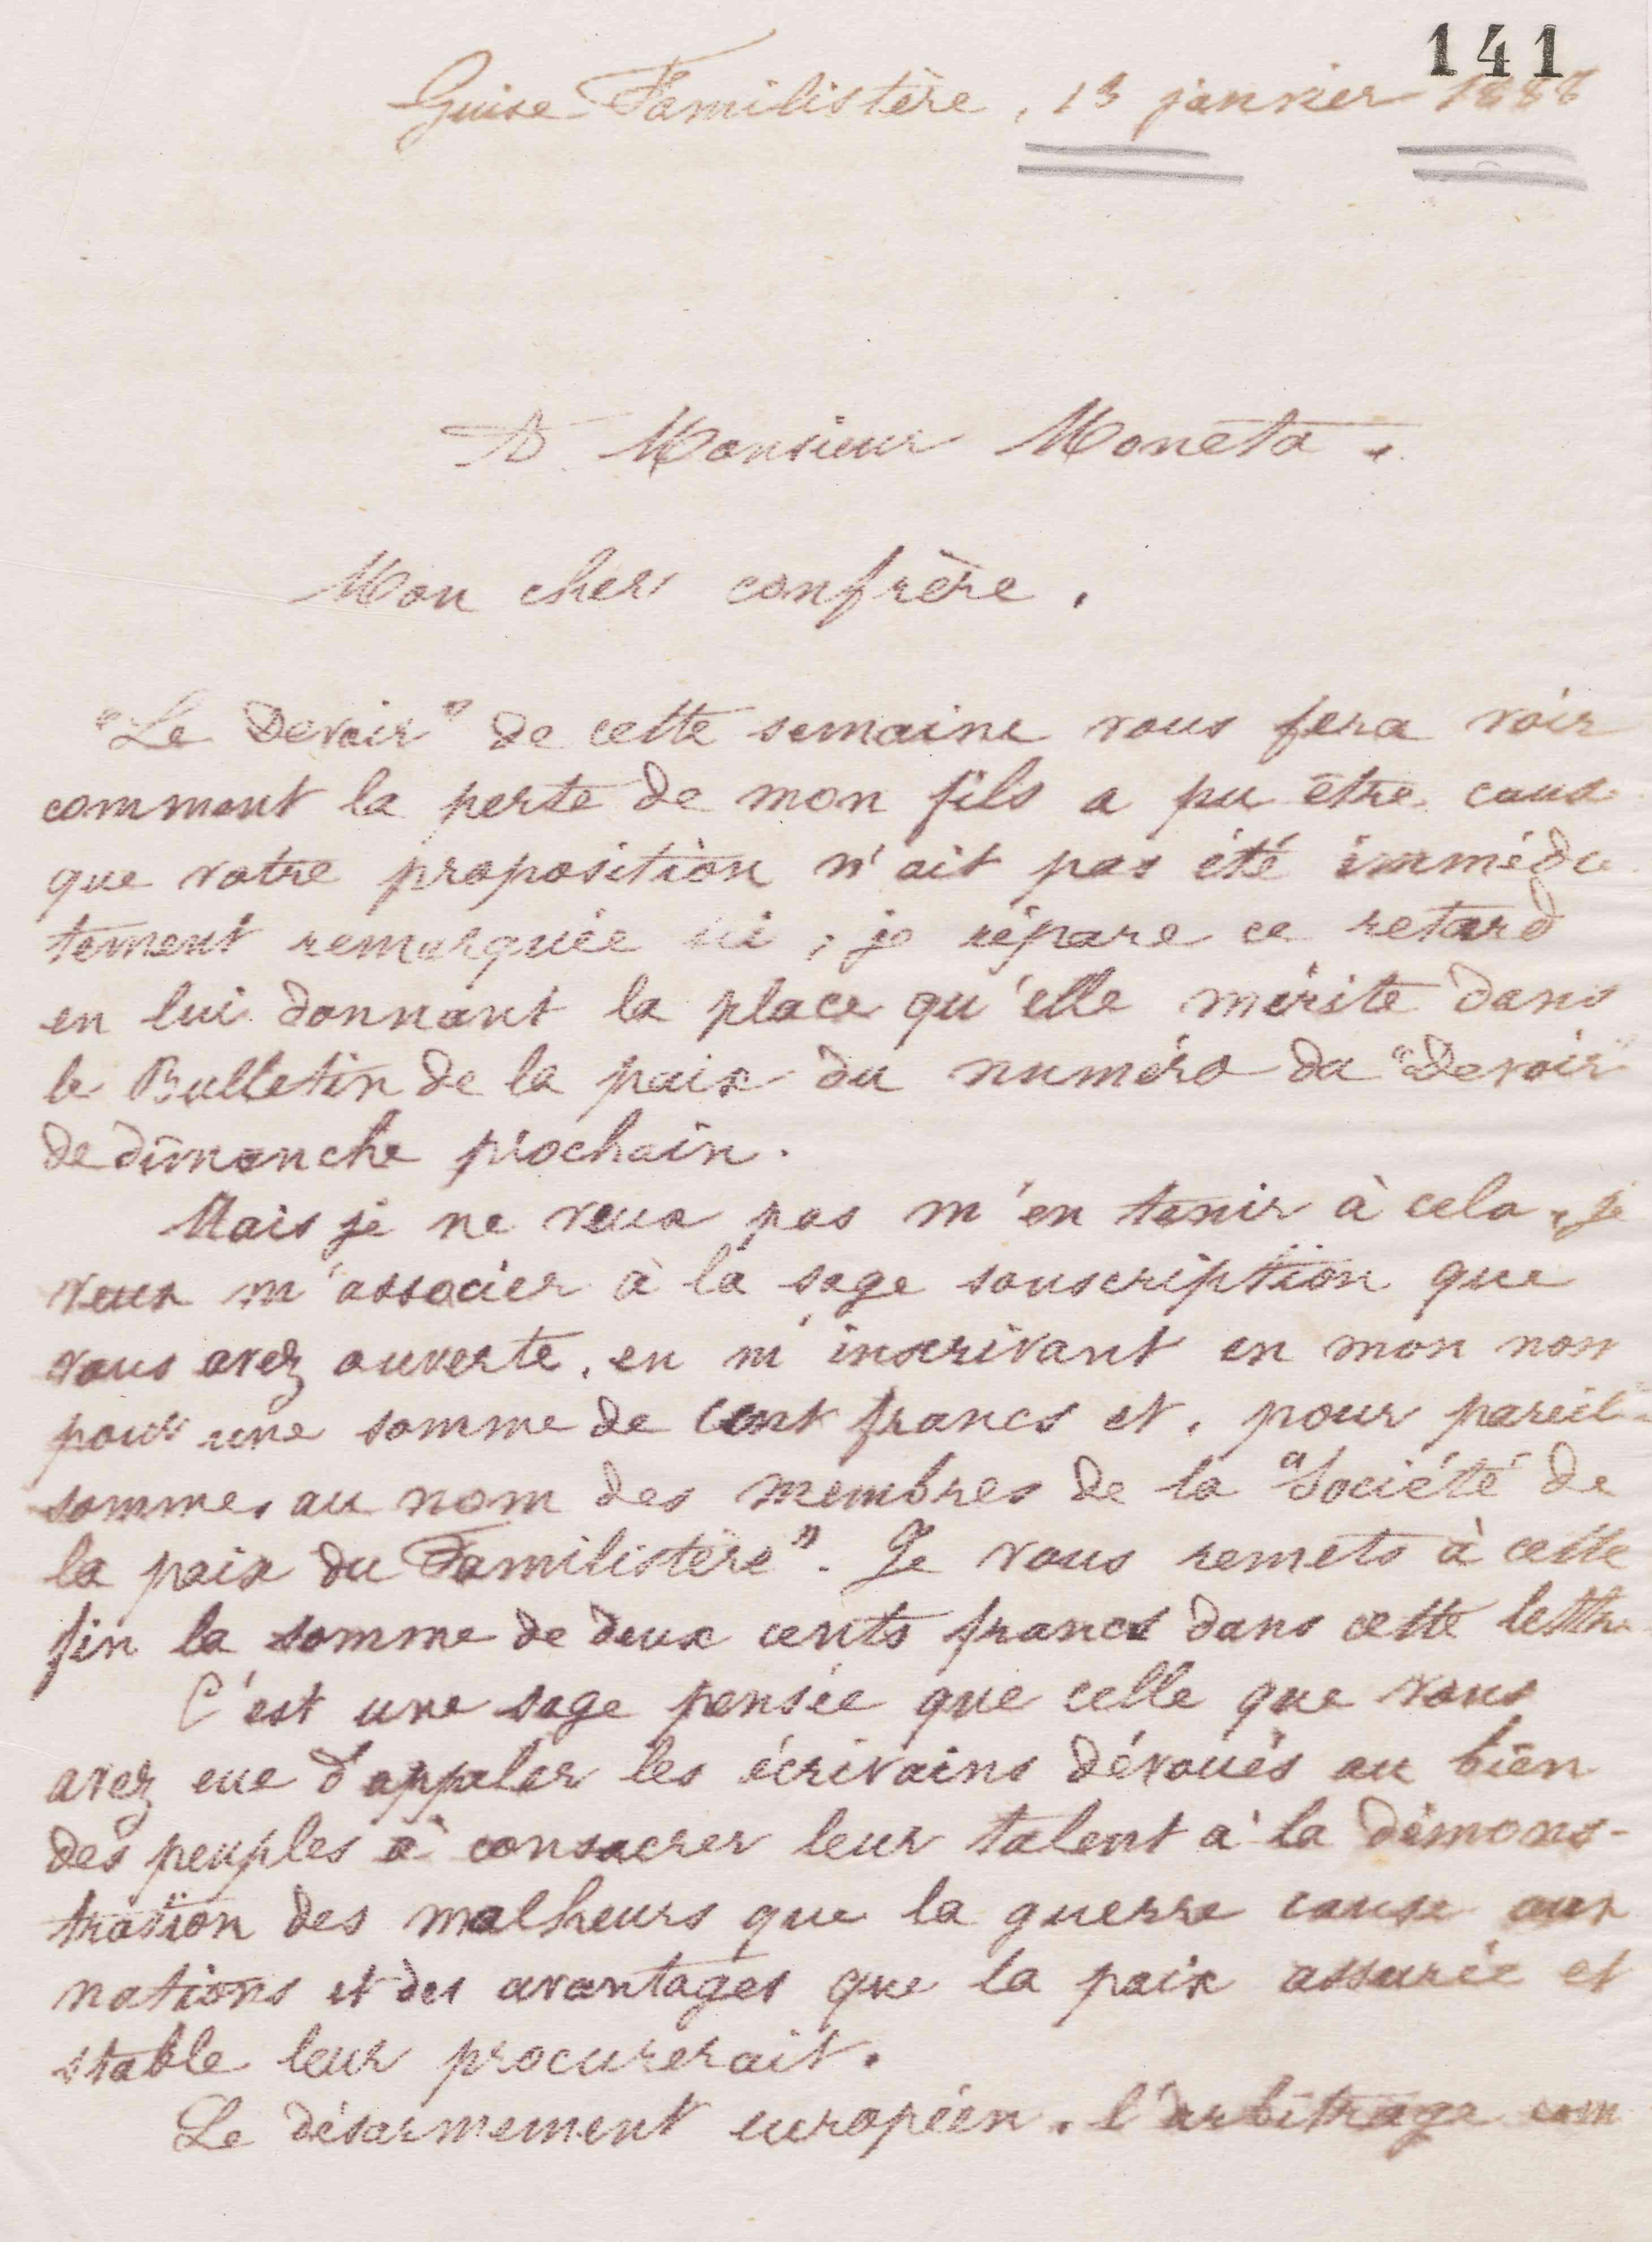 141
Guise Familistère, 13 janvier 1888
A Monsieur Moneta.
Mon cher confrère.
"Le Devoir" de cette semaine vous fera voir
comment la perte de mon fils a pu être cause
que votre proposition n'ait pas été immédia
tement remarquée ici, je répare ce retard
en lui donnant la place qu'elle mérite dans
le Bulletin de la paix du numéro du "Devoir"
de dimanche prochain.
Mais je ne veux pas m'en tenir à cela, je
veux m'associer à la sage souscription que
vous avez ouverte, en m'inscrivant en mon nom
pour une somme de cent francs et, pour pareille
somme, au nom des membres de la "Société de
la paix du Familistère". Je vous remets à cette
fin la somme de deux cents francs dans cette lettre
C'est une sage pensée que celle que vous
avez eue d'appeler les écrivains dévoués au bien
des peuples à consacrer leur talent à la démons-
tration des malheurs que la guerre cause aux
nations et des avantages que la paix assurée et
stable leur procurerait.
Le désarmement européen, l'arbitrage com